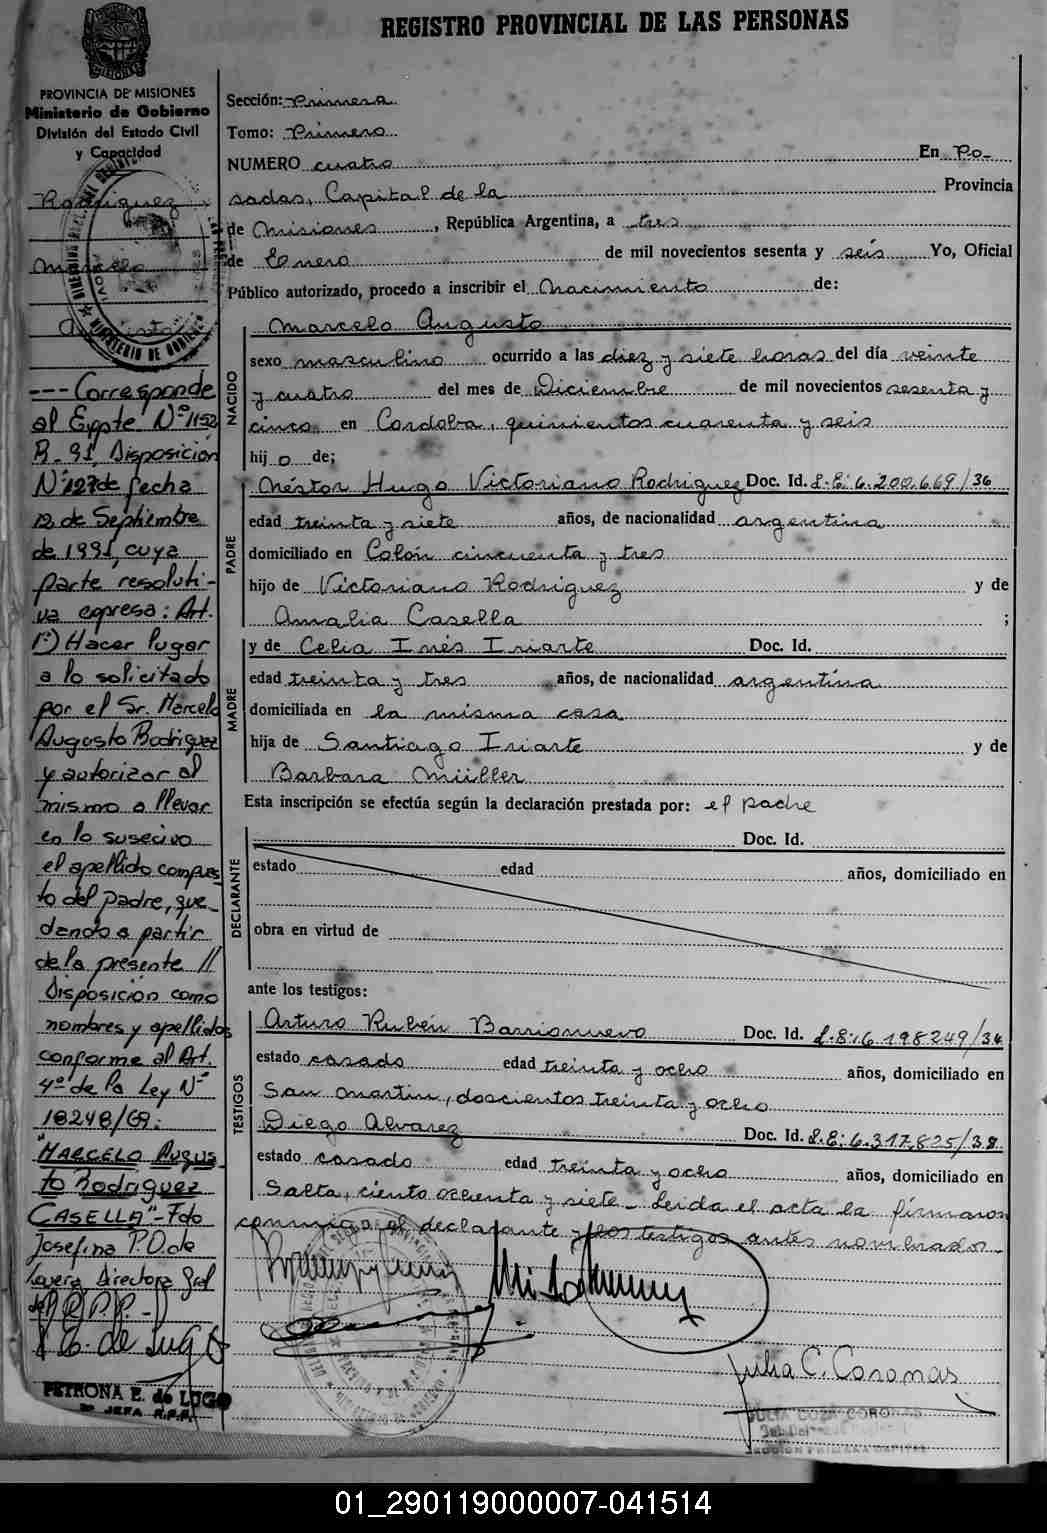 REGISTRO PROVINCIAL DE LAS PERSONAS
PROVINCIA DE MISIONES
Ministerio de Gobierno
División del Estado Civil
y Capacidad
Rodriguez
Marcelo
Augusto
--- Corresponde
al Expte Nº 1152
R-91, Disposición
Nº 127 de fecha
12 de Septiembre
de 1991, cuya
parte resoluti-
va expresa: Art.
1º) Hacer lugar
a lo solicitado
por el Sr. Marcelo
Augusto Rodriguez
y autorizar al
mismo a llevar
en lo susecivo
el apellido compues-
to del padre, que-
dando a partir
de la presente //
Disposición como
nombres y apellidos
conforme al Art.
4º de la Ley Nº
18248/69:
"MARCELO Augus-
to Rodriguez
CASELLA"- Fdo
Josefina P.D. de
Directora Gral
del R.P.P.-
PETRONA E. de LUGO
JEFA R.P.P.
Sección: Primera
Tomo: Primero
NUMERO cuatro En Po-
sadas, Capital de la Provincia
de Misiones, República Argentina, a tres
de Enero de mil novecientos sesenta y seis Yo, Oficial
Público autorizado, procedo a inscribir el Nacimiento de:
NACIDO
Marcelo Augusto
sexo masculino ocurrido a las diez y siete horas del día veinte
y cuatro del mes de Diciembre de mil novecientos sesenta y
cinco en Cordoba, quinientos cuarenta y seis
hijo de;
PADRE
Néstor Hugo Victoriano Rodriguez Doc. Id. L.E: 6.200.669/36
edad treinta y siete años, de nacionalidad argentina
domiciliado en Colón cincuenta y tres
hijo de Victoriano Rodriguez y de
Amalia Casella ;
MADRE
y de Celia Inés Iriarte Doc. Id.
edad treinta y tres años, de nacionalidad argentina
domiciliada en la misma casa
hija de Santiago Iriarte y de
Barbara Müller
Esta inscripción se efectúa según la declaración prestada por: el padre
DECLARANTE
Doc. Id.
estado edad años, domiciliado en
obra en virtud de
ante los testigos:
TESTIGOS
Arturo Rubén Barrionuevo Doc. Id. L.E: 6.198249/34
estado casado edad treinta y ocho años, domiciliado en
San Martin, doscientos treinta y ocho
Diego Alvarez Doc. Id. L.E: 6.317.825/38
estado casado edad treinta y ocho años, domiciliado en
Salta, ciento ochenta y siete- Leida el acta la firmaron
conmigo el declarante y los testigos antes nombrados-
Julia C. Coronas
01_290119000007-041514